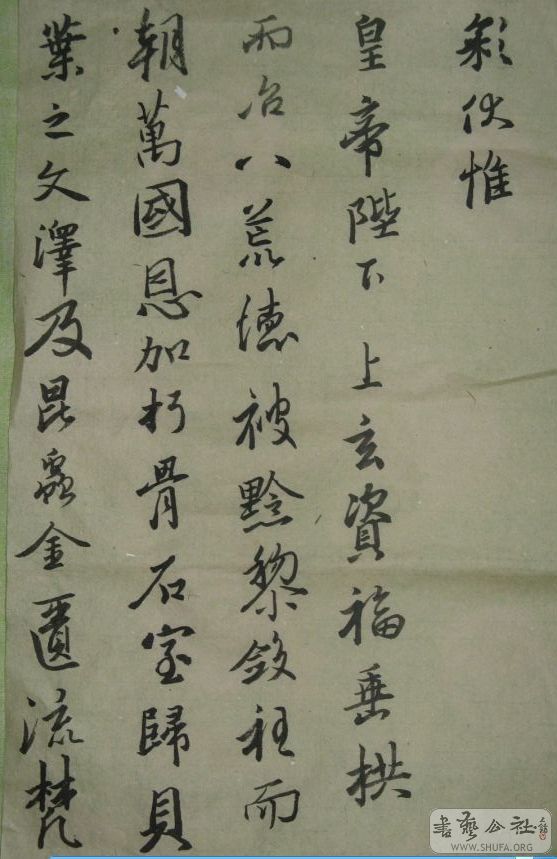 彩伏惟
皇帝陛下上玄資福垂拱
而治八荒德被黔黎斂衽而
朝萬國恩加朽骨石室歸貝
葉之文澤及昆蟲金匱流梵
書藝公社
WWW.SHUFA.ORG